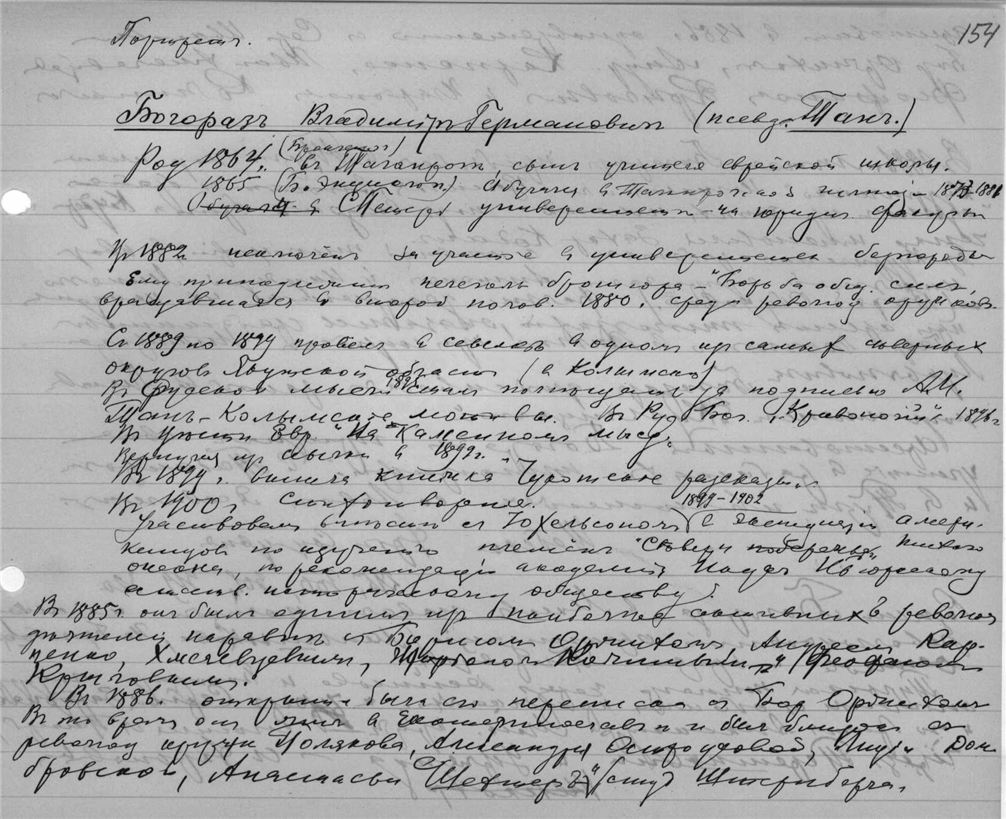 Портретъ.
154
Богоразъ Владимiръ Германовичъ (псевд. Танъ.)
Род 1864 г. въ Таганрогѣ, сынъ учителя еврейской школы.
1865 (Б. энциклоп.) Обучался в Таганрогской гимназ.
Обучался в Петерб университетѣ на юридич факульт
Въ 1882 исключенъ за участие в университетск безпоряд
Ему принадлежит печатная брошюра - "Борьба общ. силъ,
вращавшаяся в второй полов. 1880 г. среди револ кружков.
Съ 1889 по 1899 провелъ в ссылкѣ в одномъ изъ самых северных
округов Якутской области (в Колымскѣ)
Въ Русской мысли 1895 сталъ под подписью
Танъ - Колымские мотивы. Въ Рус Бог. "Кривоногий" 1896 г.
"На Каменномъ мысу"
Вернулся из ссылки в 1899 г.
Въ 1899 г. вышла книжка Чукотские разсказы.
Въ 1900 г. Стихотворения.
1899-1902
Участвовал вместе съ Iохельсономъ в экспедицiи амери-
канцов по изученiю племенъ северн побережья Тихаго
океана, по рекомендацiи академiи Наукъ Нью-иоркскому
естеств. историческому обществу.
Въ 1885 г. онъ былъ одним изъ наиболее активных револ
дѣятелей наравнѣ с Борисом Оржихом, Андреем Кар-
пенко,
Крыловым.
Въ 1886 г. открыта была его переписка с Бор Оржихом
В то время он жил в Екатеринославѣ и был близок с
револ кружк Полякова, Александры Остроумовой, Дом
бровской, Анастасьи Шехтеръ, студ Штернберга.